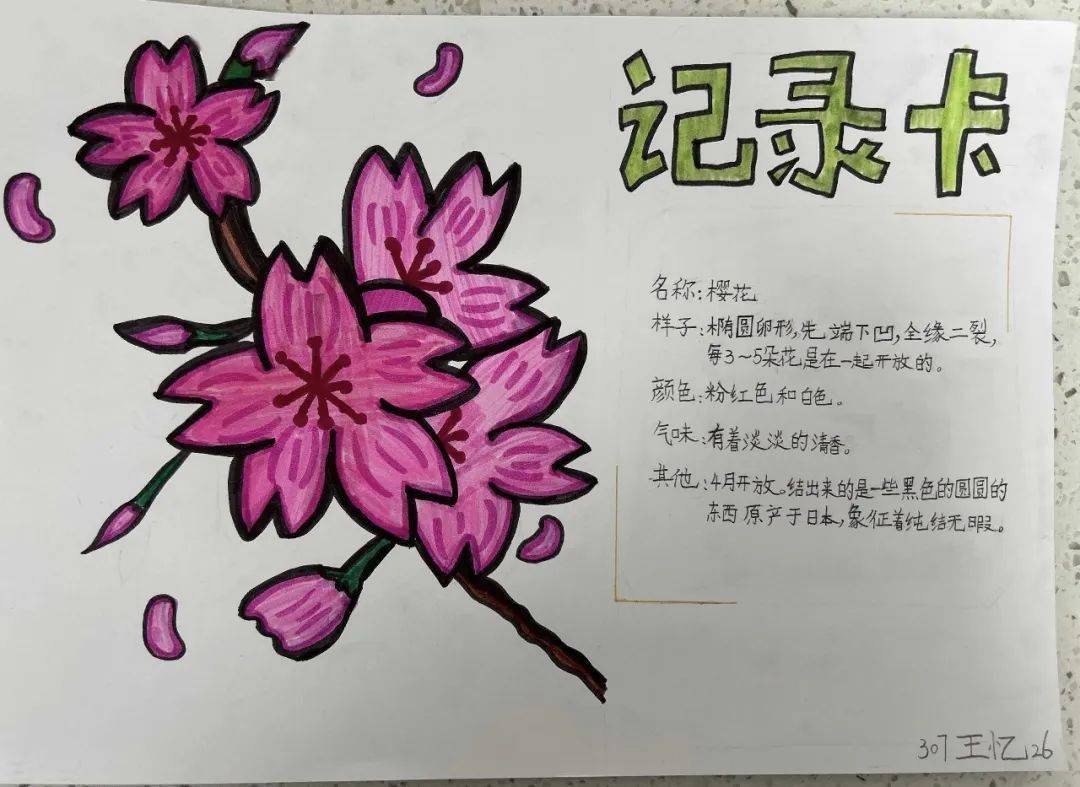 记录卡
名称:樱花
样子:椭圆卵形,先端下凹,全缘二裂,
每3~5朵花是在一起开放的。
颜色:粉红色和白色。
气味:有着淡淡的清香。
其他:4月开放。结出来的是一些黑色的圆圆的
东西 原产于日本,象征着纯结无暇。
307 王忆 26